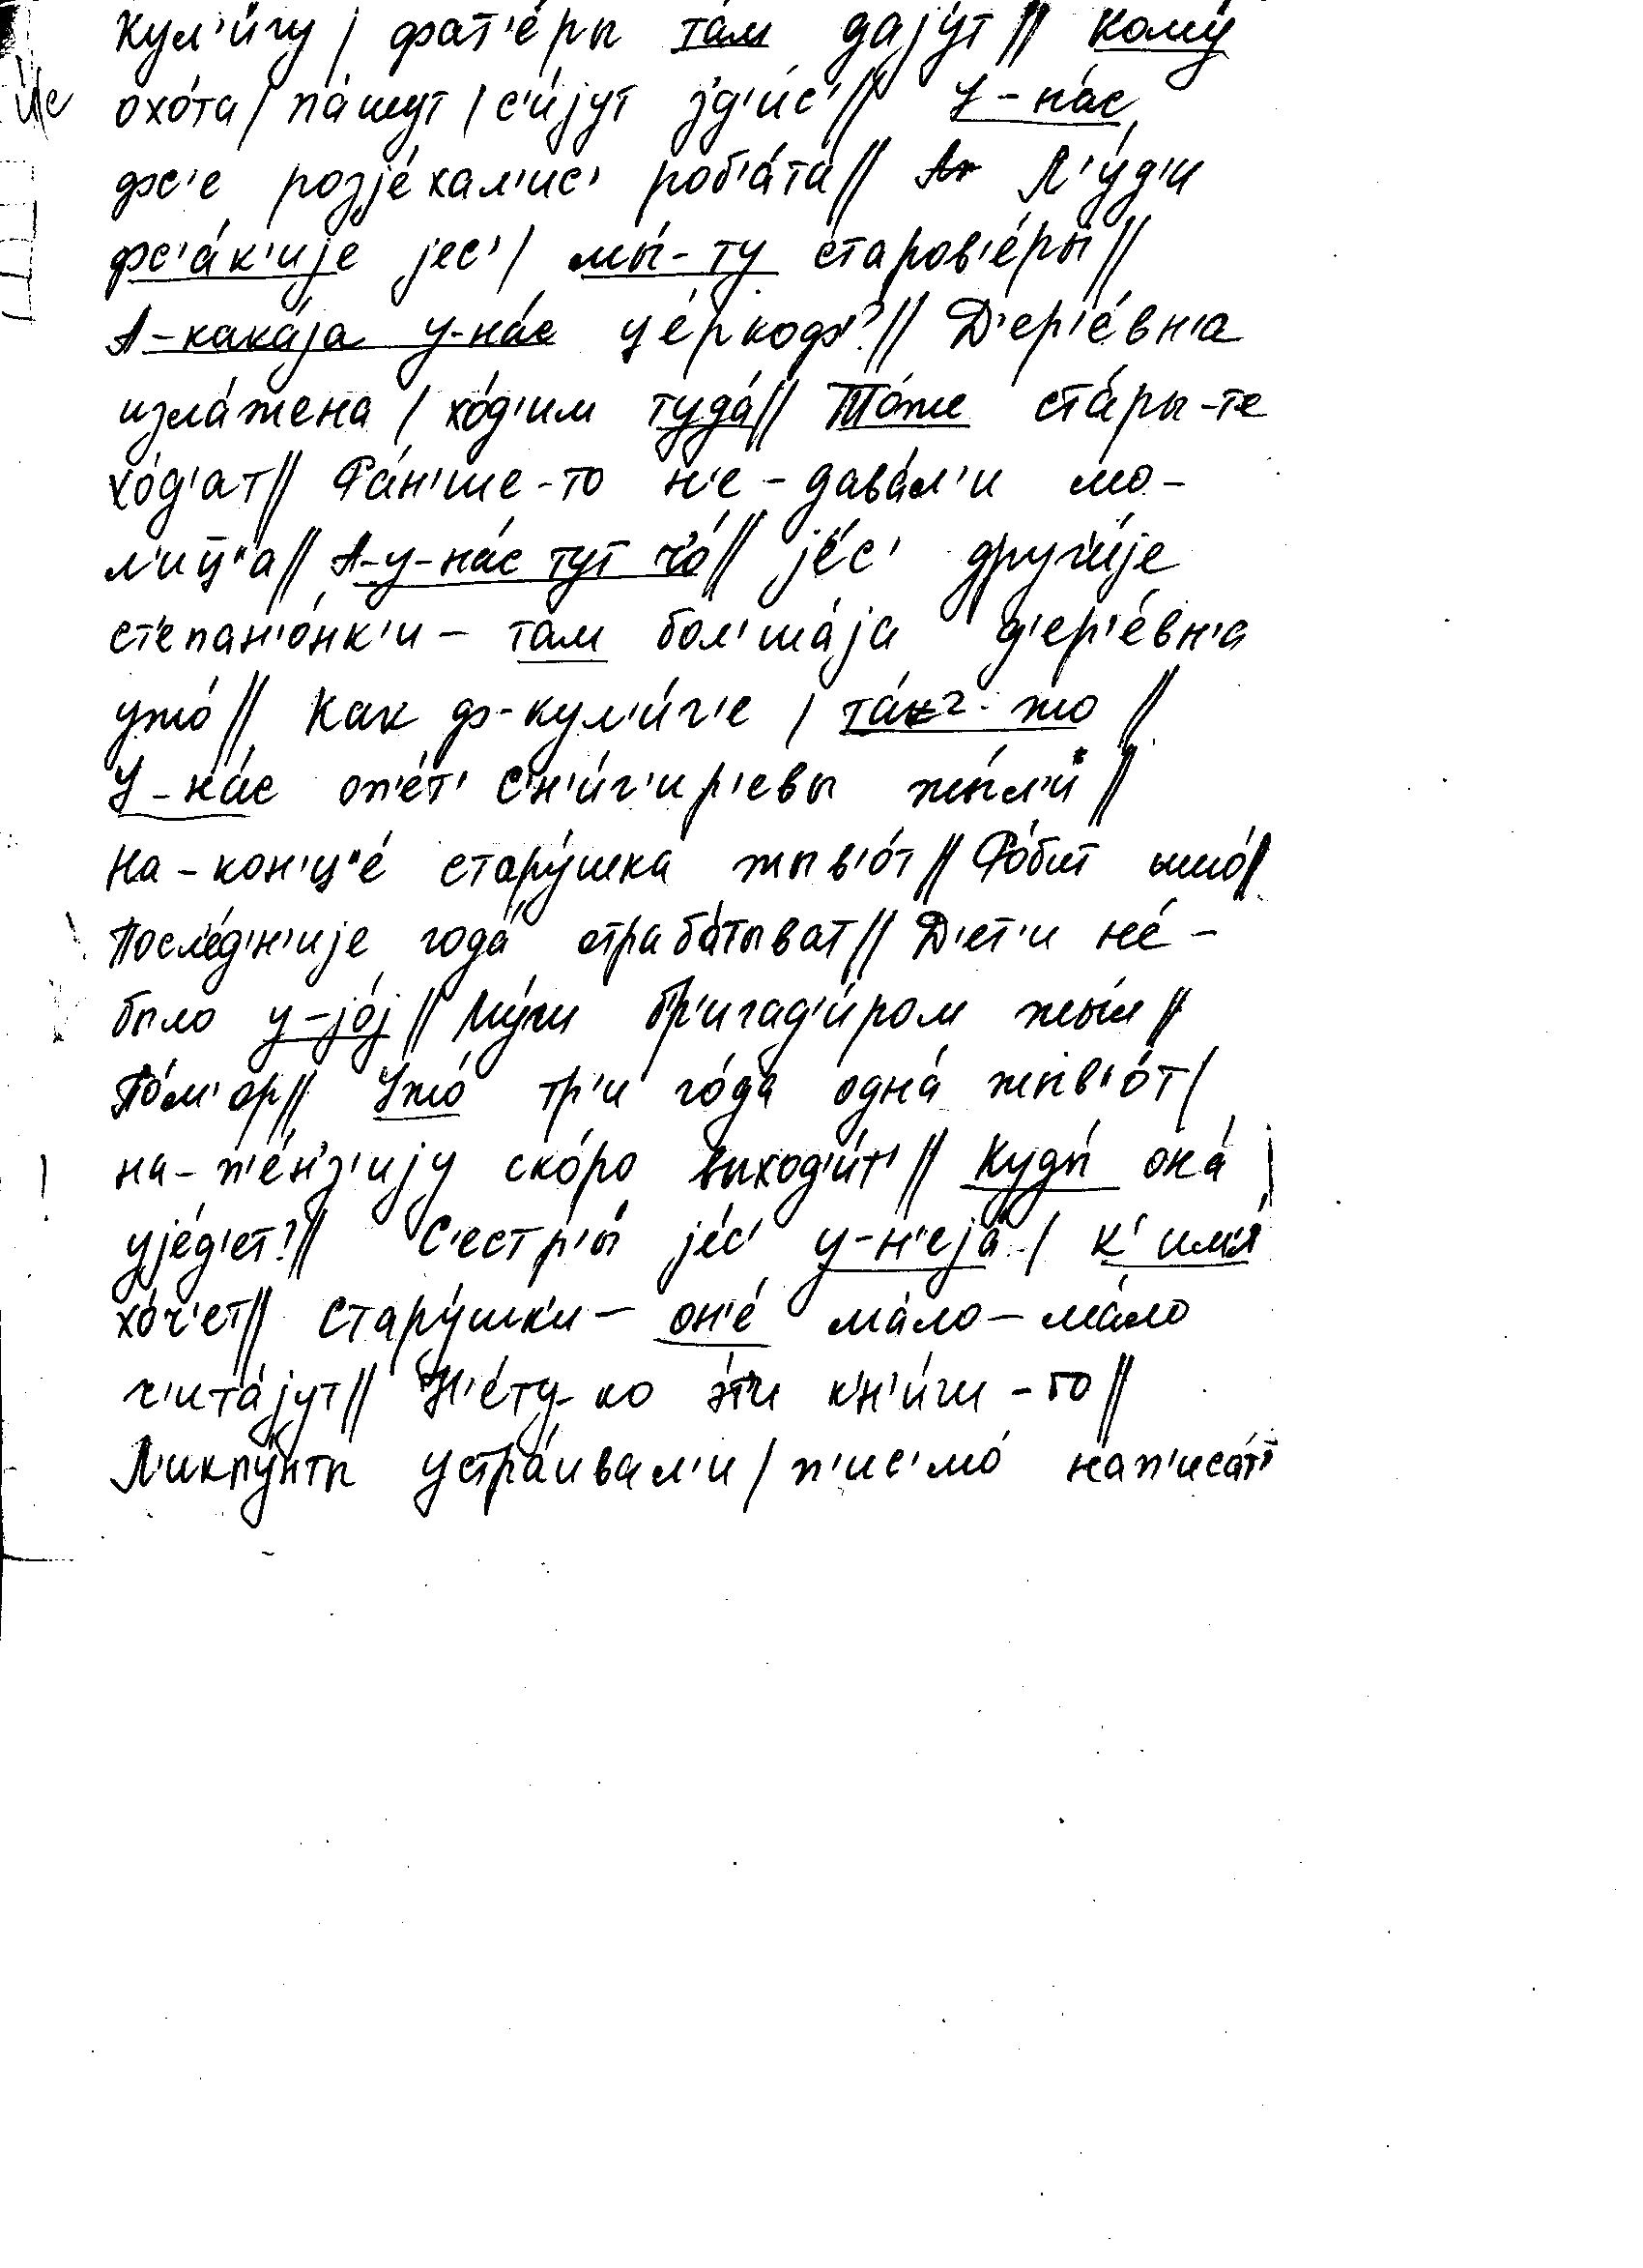 кул'и́гу / фат'е́ры та́м дају́т // кому́
охо́та / па́шут / с'и́јут зд'и́с' // У-на́с
фс'е розје́хал'ис' роб'а́та // Л'у́д'и
фс'а́к'ије јес' / мы́-ту старов'е́ры //
А-кака́ја у-на́с це́ркоф'? // Д'ер'е́вн'а
изла́жена / хо́д'им туда́ // То́же ста́ры-те
хо́д'ат // Ра́н'ше-то н'е-дава́л'и мо-
л'иц"а // А-у-на́с тут ч'о́ // је́с' друг'и́је
ст'епан'о́нк'и – там бол'ша́ја д'ер'е́вн'а
ужо́ // Как ф-кул'и́г'е / та́кг-жо //
У-на́с оп'е́т' С'н'и́г'ир'евы жы́л'и //
На-кон'ц"е́ стару́шка жыв'о́т // Ро́бит ышо́ //
Посл'е́дн'ије года́ отраба́тыват // Д'ет'и не́-
было у-јо́ј // Му́ж бр'игад'и́ром жы́л //
По́м'ор // Ужо́ тр'и го́да одна́ жыв'о́т /
на-п'е́нз'ију ско́ро выход'и́т' // Куды́ она́
ује́д'ет? // С'естр'ы́ је́с' у-н'еја́ / к' им'а́
хо́ч'ет // Стару́шк'и – он'е́ ма́ло-ма́ло
ч'ита́јут // Н'е́ту-ко э́ти к'н'и́ги-то //
Л'икпу́нты устра́ивал'и / п'ис'мо́ нап'иса́т'